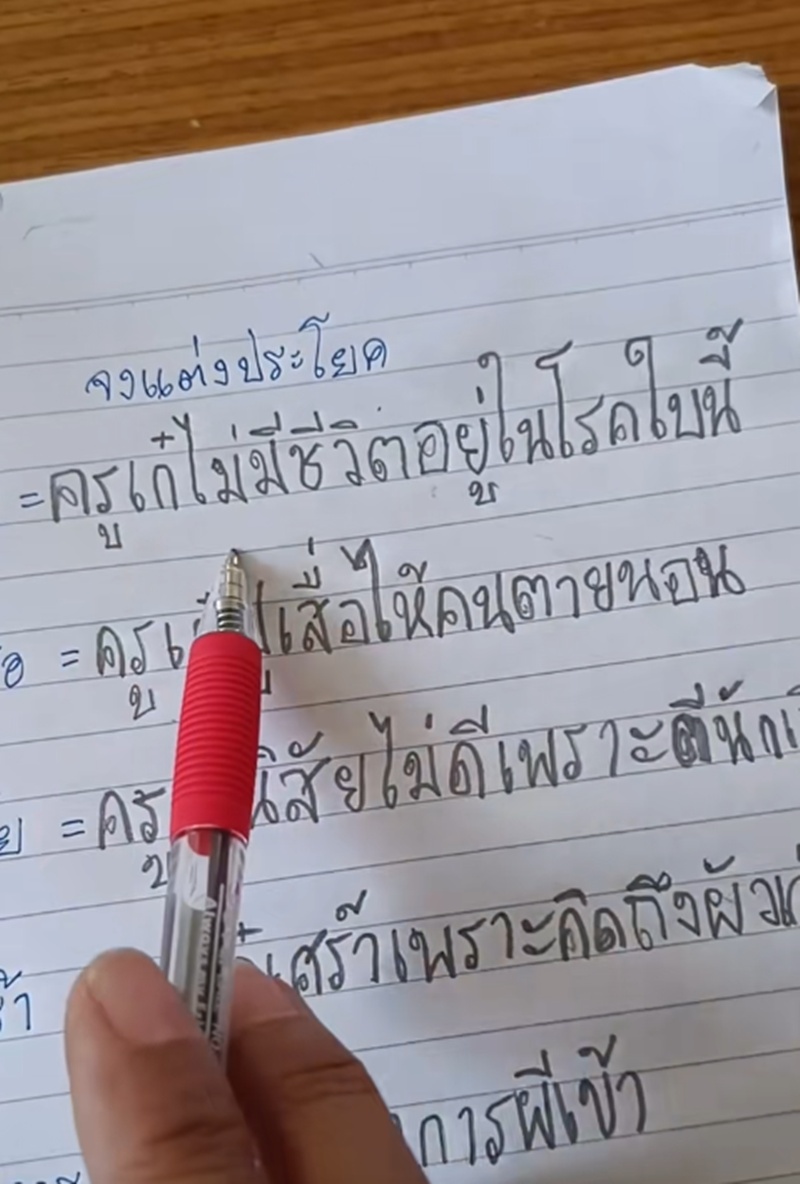 จงแต่งประโยค
= ครูเก๋ไม่มีชีวิตอยู่ในโรคใบนี้
= ครู เสื่อให้คนตายนอน
= ครู นิสัยไม่ดีเพราะตีนัก
เศร้าเพราะคิดถึงผัว
การผีเข้า